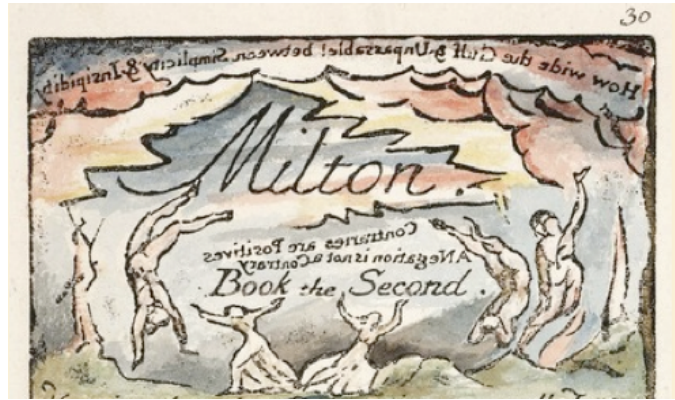 30
How wide the Gulf & Unpassable! between Simplicity & Insipidity
Milton.
Contraries are Positives
A Negation is not a Contrary
Book the Second.